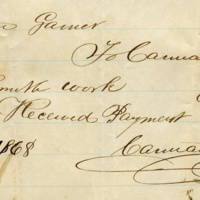 Garner
To Cannad
Smith work
Received Payment
1868 Cannad